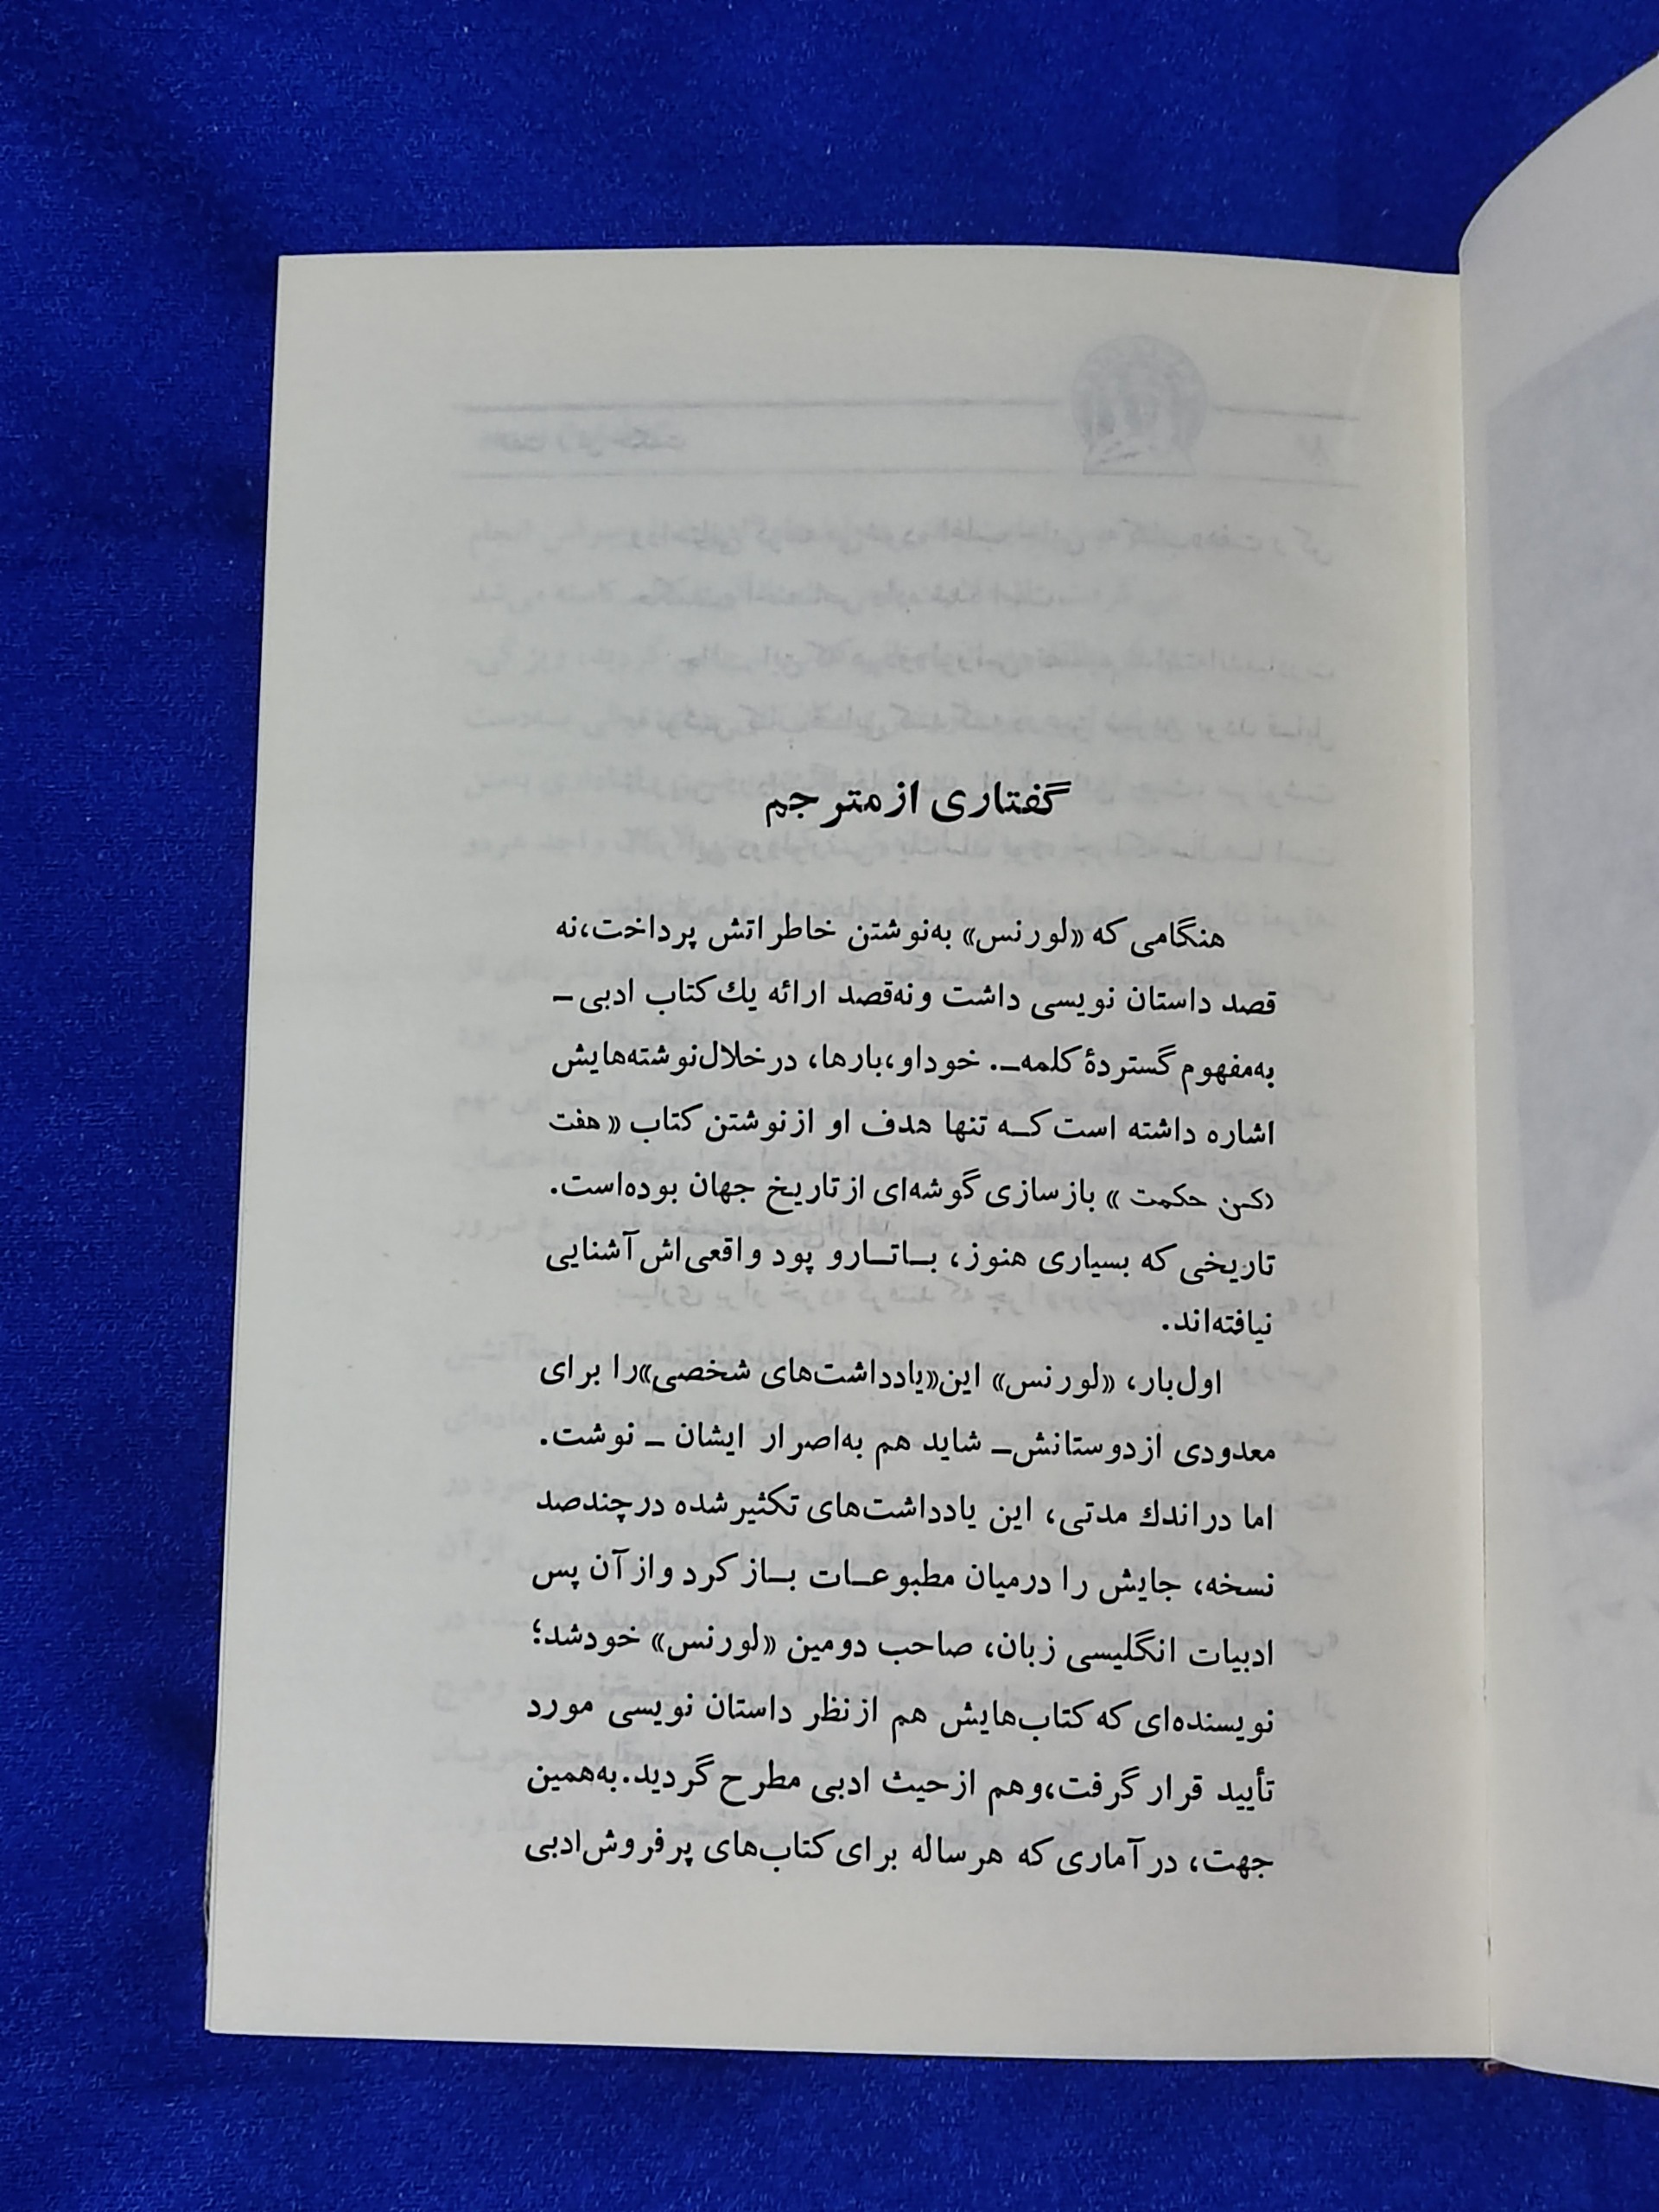 گفتاری از مترجم
هنگامی که «لورنس» به‌نوشتن خاطراتش پرداخت،نه
قصد داستان نویسی داشت ونه‌قصد ارائه یك کتاب ادبی ـ
به‌مفهوم گستردۀ کلمه‌ـ. خوداو،بارها، درخلال‌نوشته‌هایش
اشاره داشته است کــه تنها هدف او ازنوشتن کتاب « هفت
رکن حکمت » بازسازی گوشه‌ای ازتاریخ جهان بوده‌است.
تاریخی که بسیاری هنوز، بــاتــارو پود واقعی‌اش آشنایی
نیافته‌اند.
اول‌بار، «لورنس» این«یادداشت‌های شخصی»را برای
معدودی ازدوستانش‌ـ شاید هم به‌اصرار ایشان ـ نوشت.
اما دراندك مدتی، این یادداشت‌های تکثیرشده درچندصد
نسخه، جایش را درمیان مطبوعــات بــازکرد وازآن پس
ادبیات انگلیسی زبان، صاحب دومین «لورنس» خودشد؛
نویسنده‌ای که کتاب‌هایش هم ازنظر داستان نویسی مورد
تأیید قرار گرفت،وهم ازحیث ادبی مطرح گردید.به‌همین
جهت، درآماری که هرساله برای کتاب‌های پرفروش‌ادبی